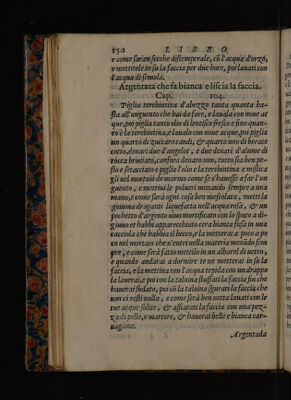 150 LIBRO
e come saran secche distemperale, cō d'acqua d'orzo,
e mettitele in su la faccia per due hore, poi lauati con
d'acqua di semola.
Argentata che fa bianca e liscia la faccia.
Cap. 104.
Piglia terebintina d'abezzo tanta quanta ba-
sta all'unguento che hai da fare, e lauala con noue ac
que, poi piglia tanto olio di lentisco fresco e fino quan-
to è la terebintina, e laualo con noue acque, poi piglia
un quarto di zuccaro candi, & quarto uno di borace
cotto, denari due d'angelot, e due denari d'alume di
rocca brusciato, canfura denaro uno, tutto sia ben pe-
sto e setacciato e piglia l'olio e la terebintina e mischia
gli nel mortaio de marmo come se s'hauesse a far l'un
guento, e mettiui le polueri menando sempre a una
mano, e come sarà ogni cosa ben mescolata, metti la
gomma draganti liquefatta nell'acqua rosa, & un
pochetto d'argento uiuo mortificato con lo sputo a di-
giuno et habbi apparecchiato cera bianca fusa in una
cacciola che habbia il becco, e la metterai a poco a po
co nel mortaio che n'entri nella materia menādo sem
pre, e come serà fatto mettilo in un albarel di uetro,
e quando andarai a dormire te ne metterai in su la
faccia, e la mattina con l'acqua tepida con un drappo
la lauerai, e poi con la
faccia fin che
hauerai sudato, poi cō la
faccia che
non ci resti nulla, e come serà ben netta lauati con le
tue acque solite, & assciutati la faccia con una pez-
za di pelle, o martore, & hauerai belle e bianca car-
nagione.
Argentada